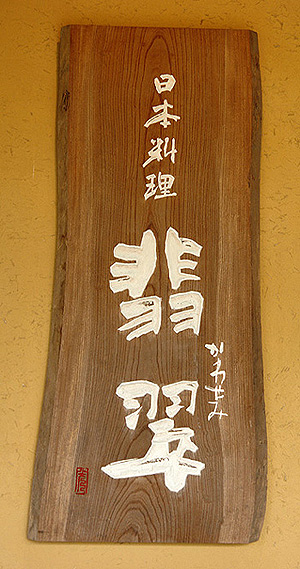 日本料理
翡翠
かわせみ